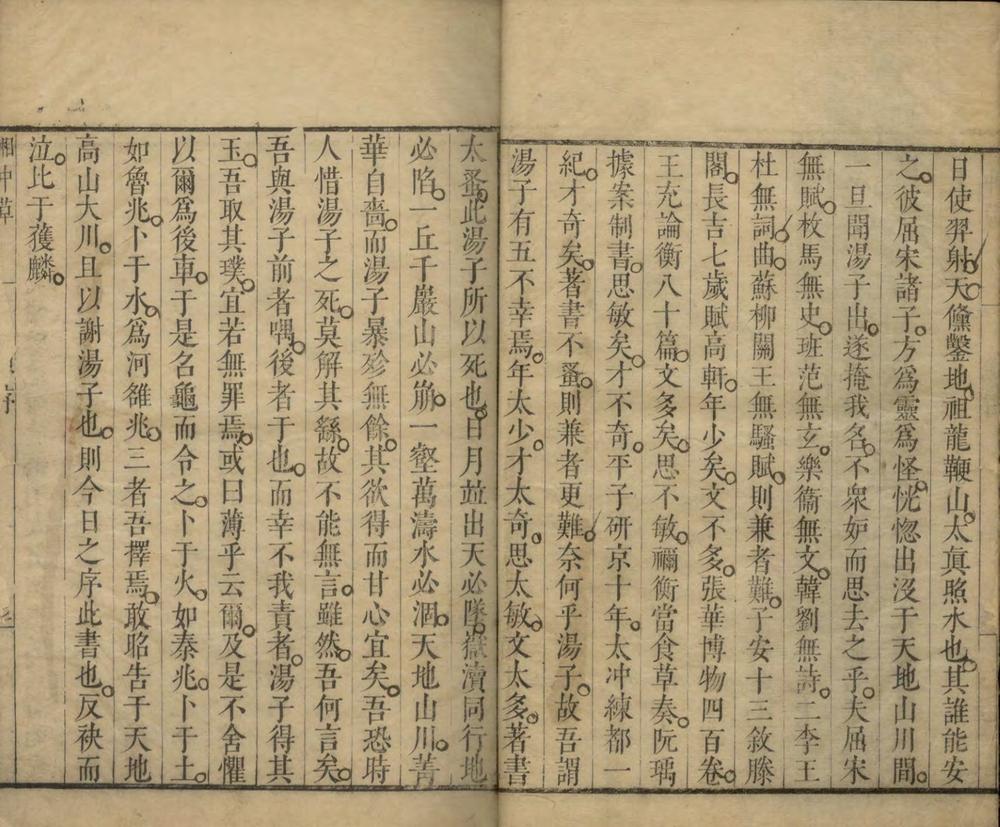 日使羿射天儵鑿地祖龍鞭山太眞照水也其誰能安
之彼屈宋諸子方爲靈爲怪恍惚出沒于天地山川間
一旦聞湯子出遂掩我名不衆妒而思去之乎夫屈宋
無賦枚馬無史班范無玄樂衞無文韓劉無詩二李王
杜無詞曲蘇柳關王無騷賦則兼者難子安十三敘滕
閣長吉七歲賦高軒年少矣文不多張華博物四百卷
王充論衡八十篇文多矣思不敏禰衡當食草奏阮瑀
據案制書思敏矣才不奇平子硏京十年太冲練都一
紀才奇矣著書不蚤則兼者更難奈何乎湯子故吾謂
湯子有五不幸焉年太少才太奇思太敏文太多著書
太蚤此湯子所以死也日月並出天必墜嶽瀆同行地
必陷一丘千巖山必崩一壑萬濤水必涸天地山川菁
華自嗇而湯子暴殄無餘其欲得而甘心宜矣吾恐時
人惜湯子之死莫解其繇故不能無言雖然吾何言矣
吾與湯子前者喁後者于也而幸不我責者湯子得其
玉吾取其璞宜若無罪焉或曰薄乎云爾及是不舍懼
以爾爲後車于是名龜而令之卜于火如秦兆卜于土
如魯兆卜于水爲河雒兆三者吾擇焉敢昭告于天地
高山大川且以謝湯子也則今日之序此書也反袂而
泣比于獲麟
湘中草
序